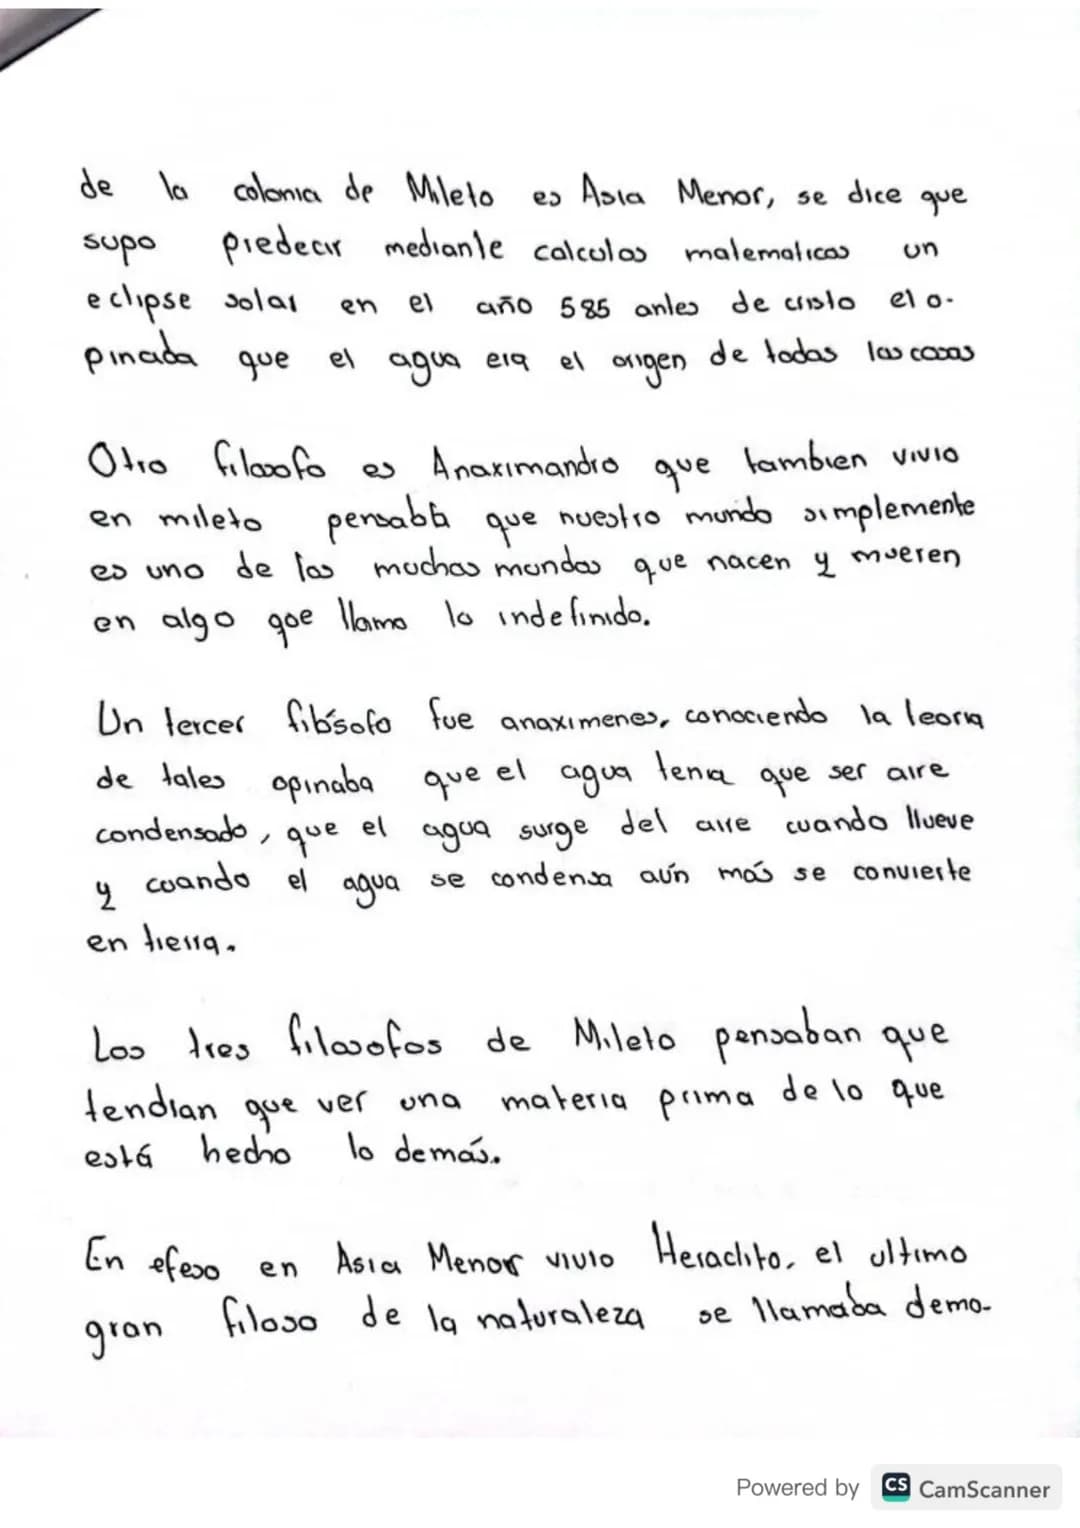 de la colonia de Mileto es Asia Menor, se dice que
supo predecir mediante calculos matematicos un
eclipse solar en el año 585 antes de cristo el o-
pinada que el agua era el origen de todas las cosas
Otro filosofo es Anaximandro que tambien vivio
en mileto pensaba que nuestro mundo simplemente
es uno de los muchos mundos que nacen y mueren
en algo que llamo lo indefinido.
Un tercer filósofo fue anaximenes, conociendo la teoria
de tales opinaba que el agua tenia que ser aire
condensado, que el agua surge del aire cuando llueve
y cuando el agua se condensa aún más se convierte
en tierra.
Los tres filosofos de Mileto pensaban que
tendian que ver una materia prima de lo que
está hecho lo demás.
En efeso en Asia Menor vivio Heraclito, el ultimo
gran filoso de la naturaleza se llamaba demo-
Powered by CS CamScanner